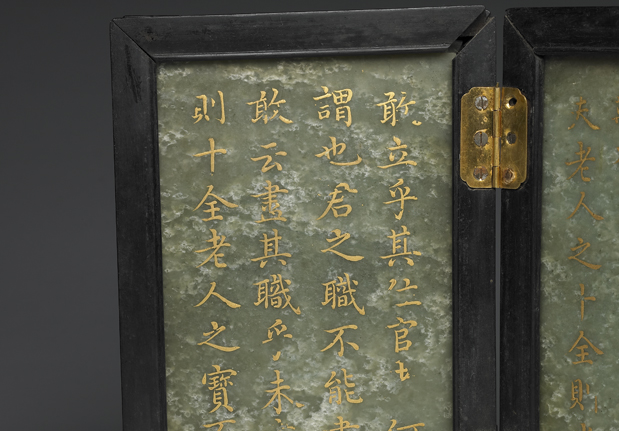 夫老人之十全則
敢立乎其官
謂也君之職不能
敢云盡其職乎未
則十全老人之寶